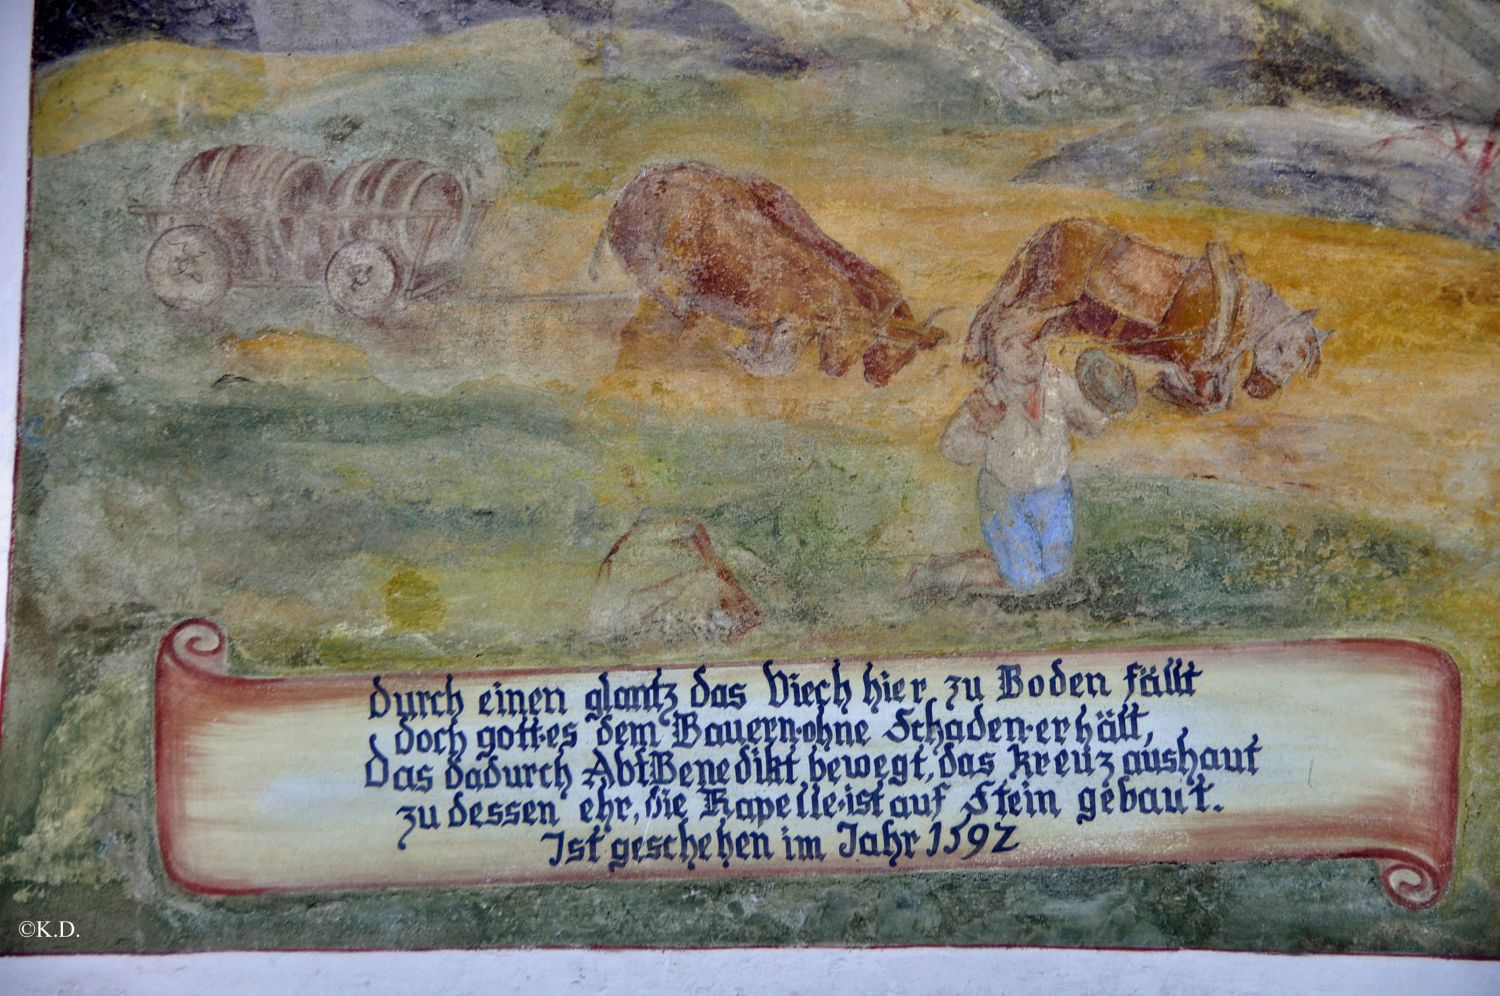 durch einen glantz das Viech hier zu Boden fällt
doch gottes dem Bauern ohne Schaden erhält,
Das dadurch Abt Benedikt bewegt, das kreuz aushaut
zu dessen ehr, die Kapelle ist auf Stein gebaut.
Ist geschehen im Jahr 1592
©K.D.